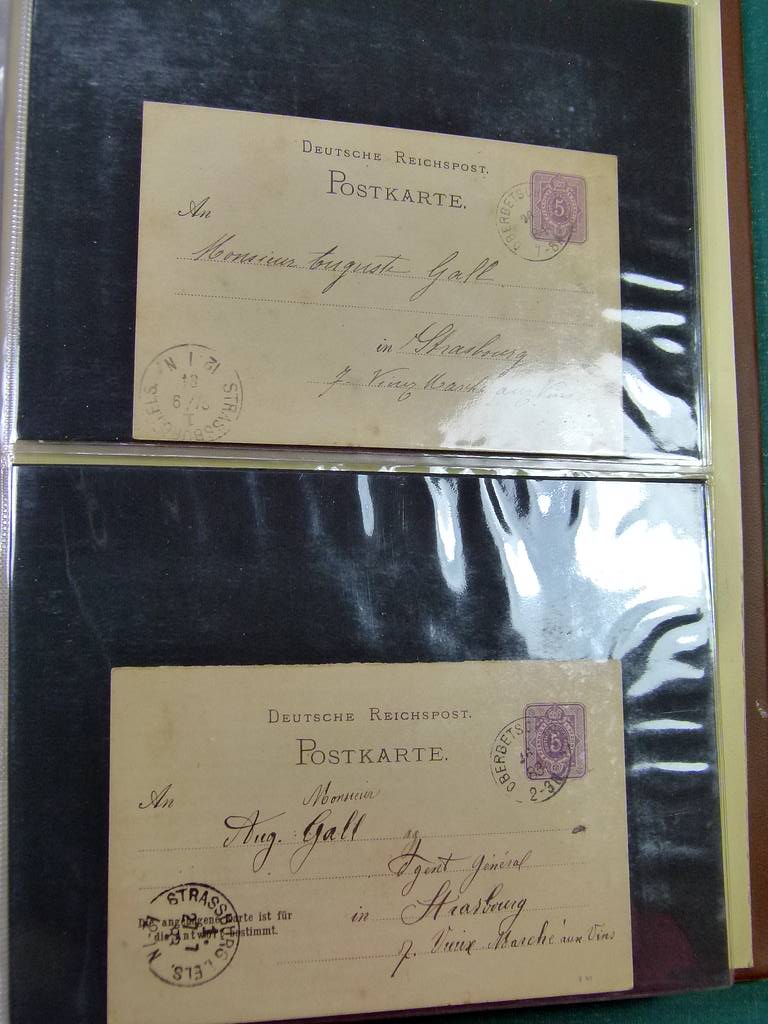 DEUTSCHE REICHSPOST.
POSTKARTE.
An
5
OBERBETS
Monsieur Auguste Gall
in Strasbourg
7 Vieux Marché aux Vins
STRASSBURG i. ELS.
DEUTSCHE REICHSPOST.
POSTKARTE.
5
OBERBETS
2-3N
An Monsieur
Aug. Gall
Agent Général
in Strasbourg
7. Vieux Marché aux Vins
STRASSBURG i. ELS.
Die angebogene Karte ist für
die Antwort bestimmt.